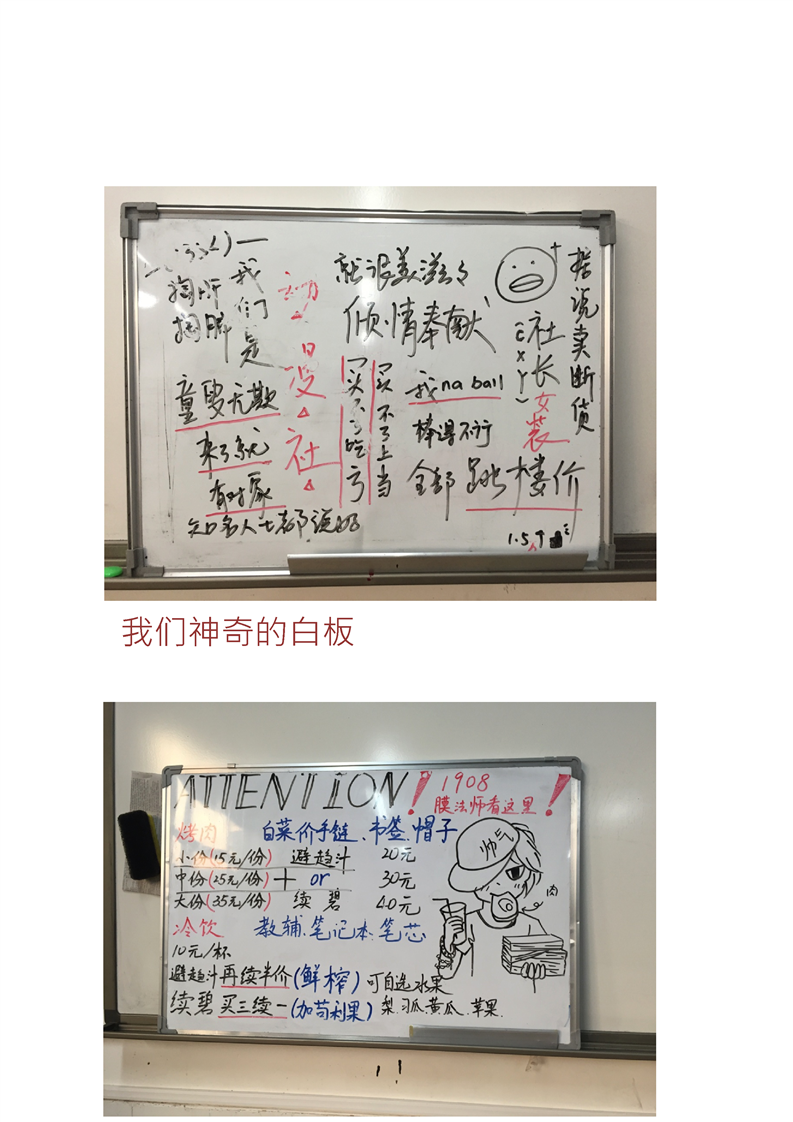 我们是
掏肝
掏肺
童叟无欺
来了就
有对象
知名人士都说好
动
漫
社
就很美滋滋
倾情奉献
买不了吃亏
买不了上当
我na ball
棒得不行
全部跳楼价
据说卖断货
社长女装
(cxy)
1.5↑
我们神奇的白板
ATTENTION!
1908
膜法师看这里!
烤肉
白菜价手链、书签、帽子
小份(15元/份) 避趋汁 20元
中份(25元/份) + or 30元
大份(35元/份) 续碧 40元
冷饮
教辅、笔记本、笔芯
10元/杯
避趋汁再续半价(鲜榨)可自选水果
续碧买三续一(加苟利果)
梨.习瓜.黄瓜.苹果.
帅气
肉